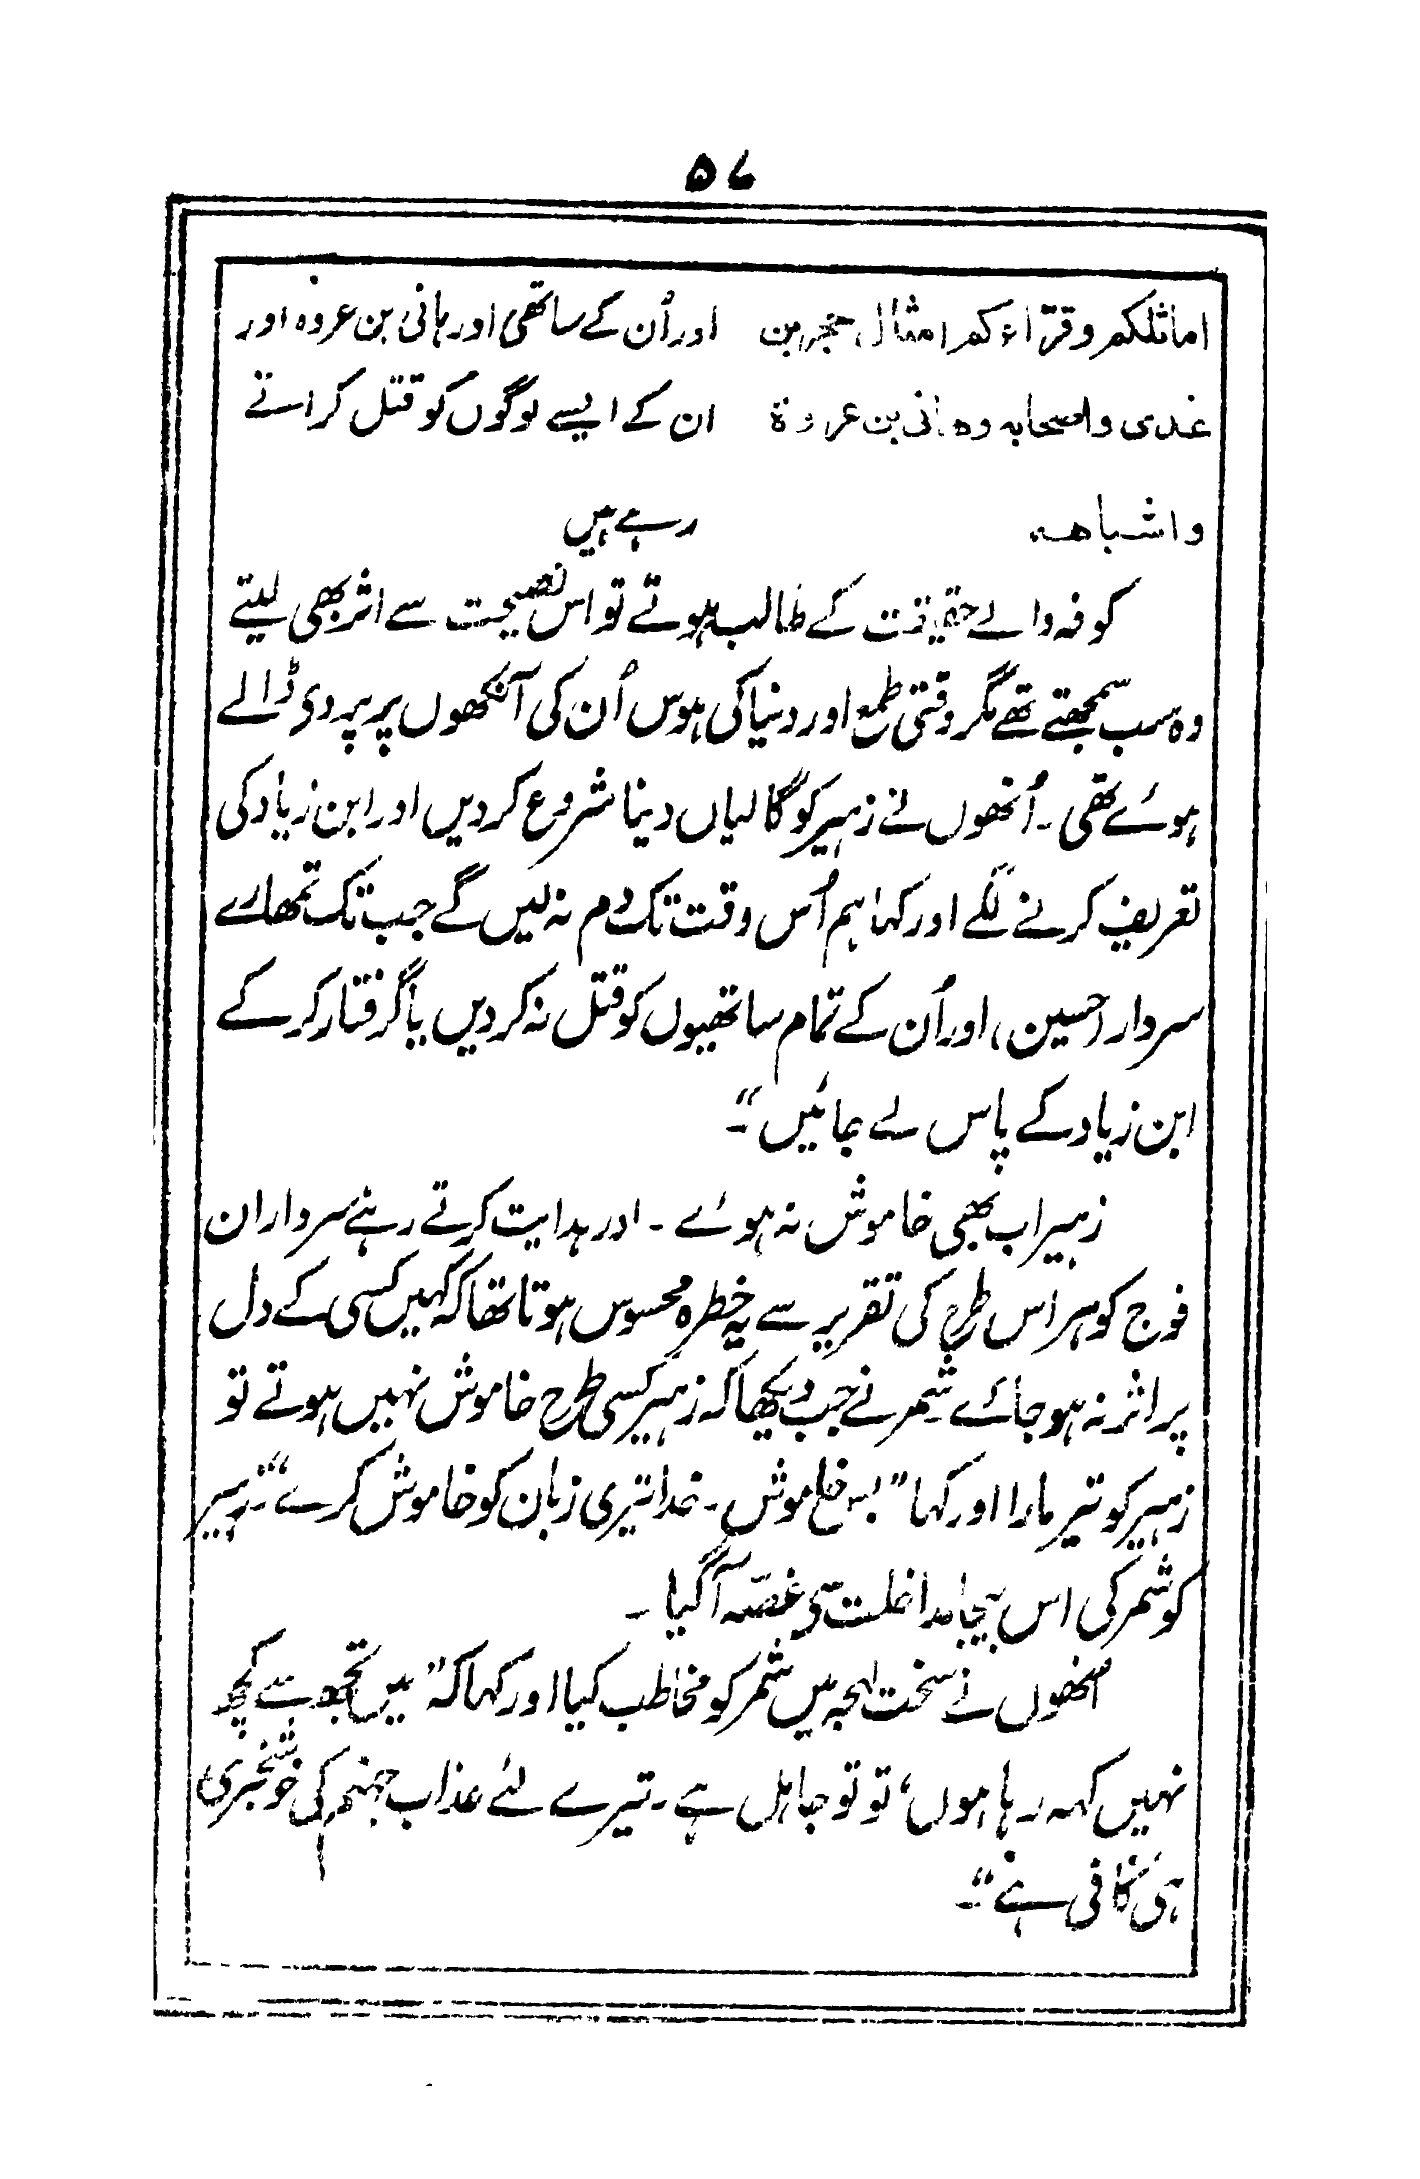 ۵۷
اماثلکم وقرّاءکم امثال حجر بن اور اُن کے ساتھی اور ہانی بن عروہ اور
عدی واصحابہ وھانی بن عروۃ ان کے ایسے لوگوں کو قتل کراتے
واشباھہ رہے ہیں
کوفہ والے حقیقت کے طالب ہوتے تو اس نصیحت سے اثر بھی لیتے
وہ سب سمجھتے تھے مگر وقتی طمع اور دنیا کی ہوس اُن کی آنکھوں پر پردی ڈالے
ہوئے تھی۔ اُنھوں نے زہیر کو گالیاں دینا شروع کردیں اور ابن زیاد کی
تعریف کرنے لگے اور کہا ہم اُس وقت تک دم نہ لیں گے جب تک تمھارے
سردار (حسین) اور اُن کے تمام ساتھیوں کو قتل نہ کردیں یا گرفتار کرکے
ابن زیاد کے پاس لے جائیں"۔
زہیر اب بھی خاموش نہ ہوئے۔ اور ہدایت کرتے رہے سرداران
فوج کو ہر اس طرح کی تقریر سے یہ خطرہ محسوس ہوتا تھا کہ کہیں کسی کے دل
پر اثر نہ ہوجائے شمر نے جب دیکھا کہ زہیر کسی طرح خاموش نہیں ہوتے تو
زہیر کو تیر مارا اور کہا "بس خاموش۔ خدا تیری زبان کو خاموش کرے"۔ زہیر
کو شمر کی اس بیجا مداخلت سی غصّہ آگیا۔
انھوں نے سخت لہجہ میں شمر کو مخاطب کیا اور کہا کہ "میں تجھ سے کچھ
نہیں کہہ رہا ہوں، تو تو جاہل ہے۔ تیرے لئے عذاب جہنم کی خوشخبری
ہی کافی ہے"۔